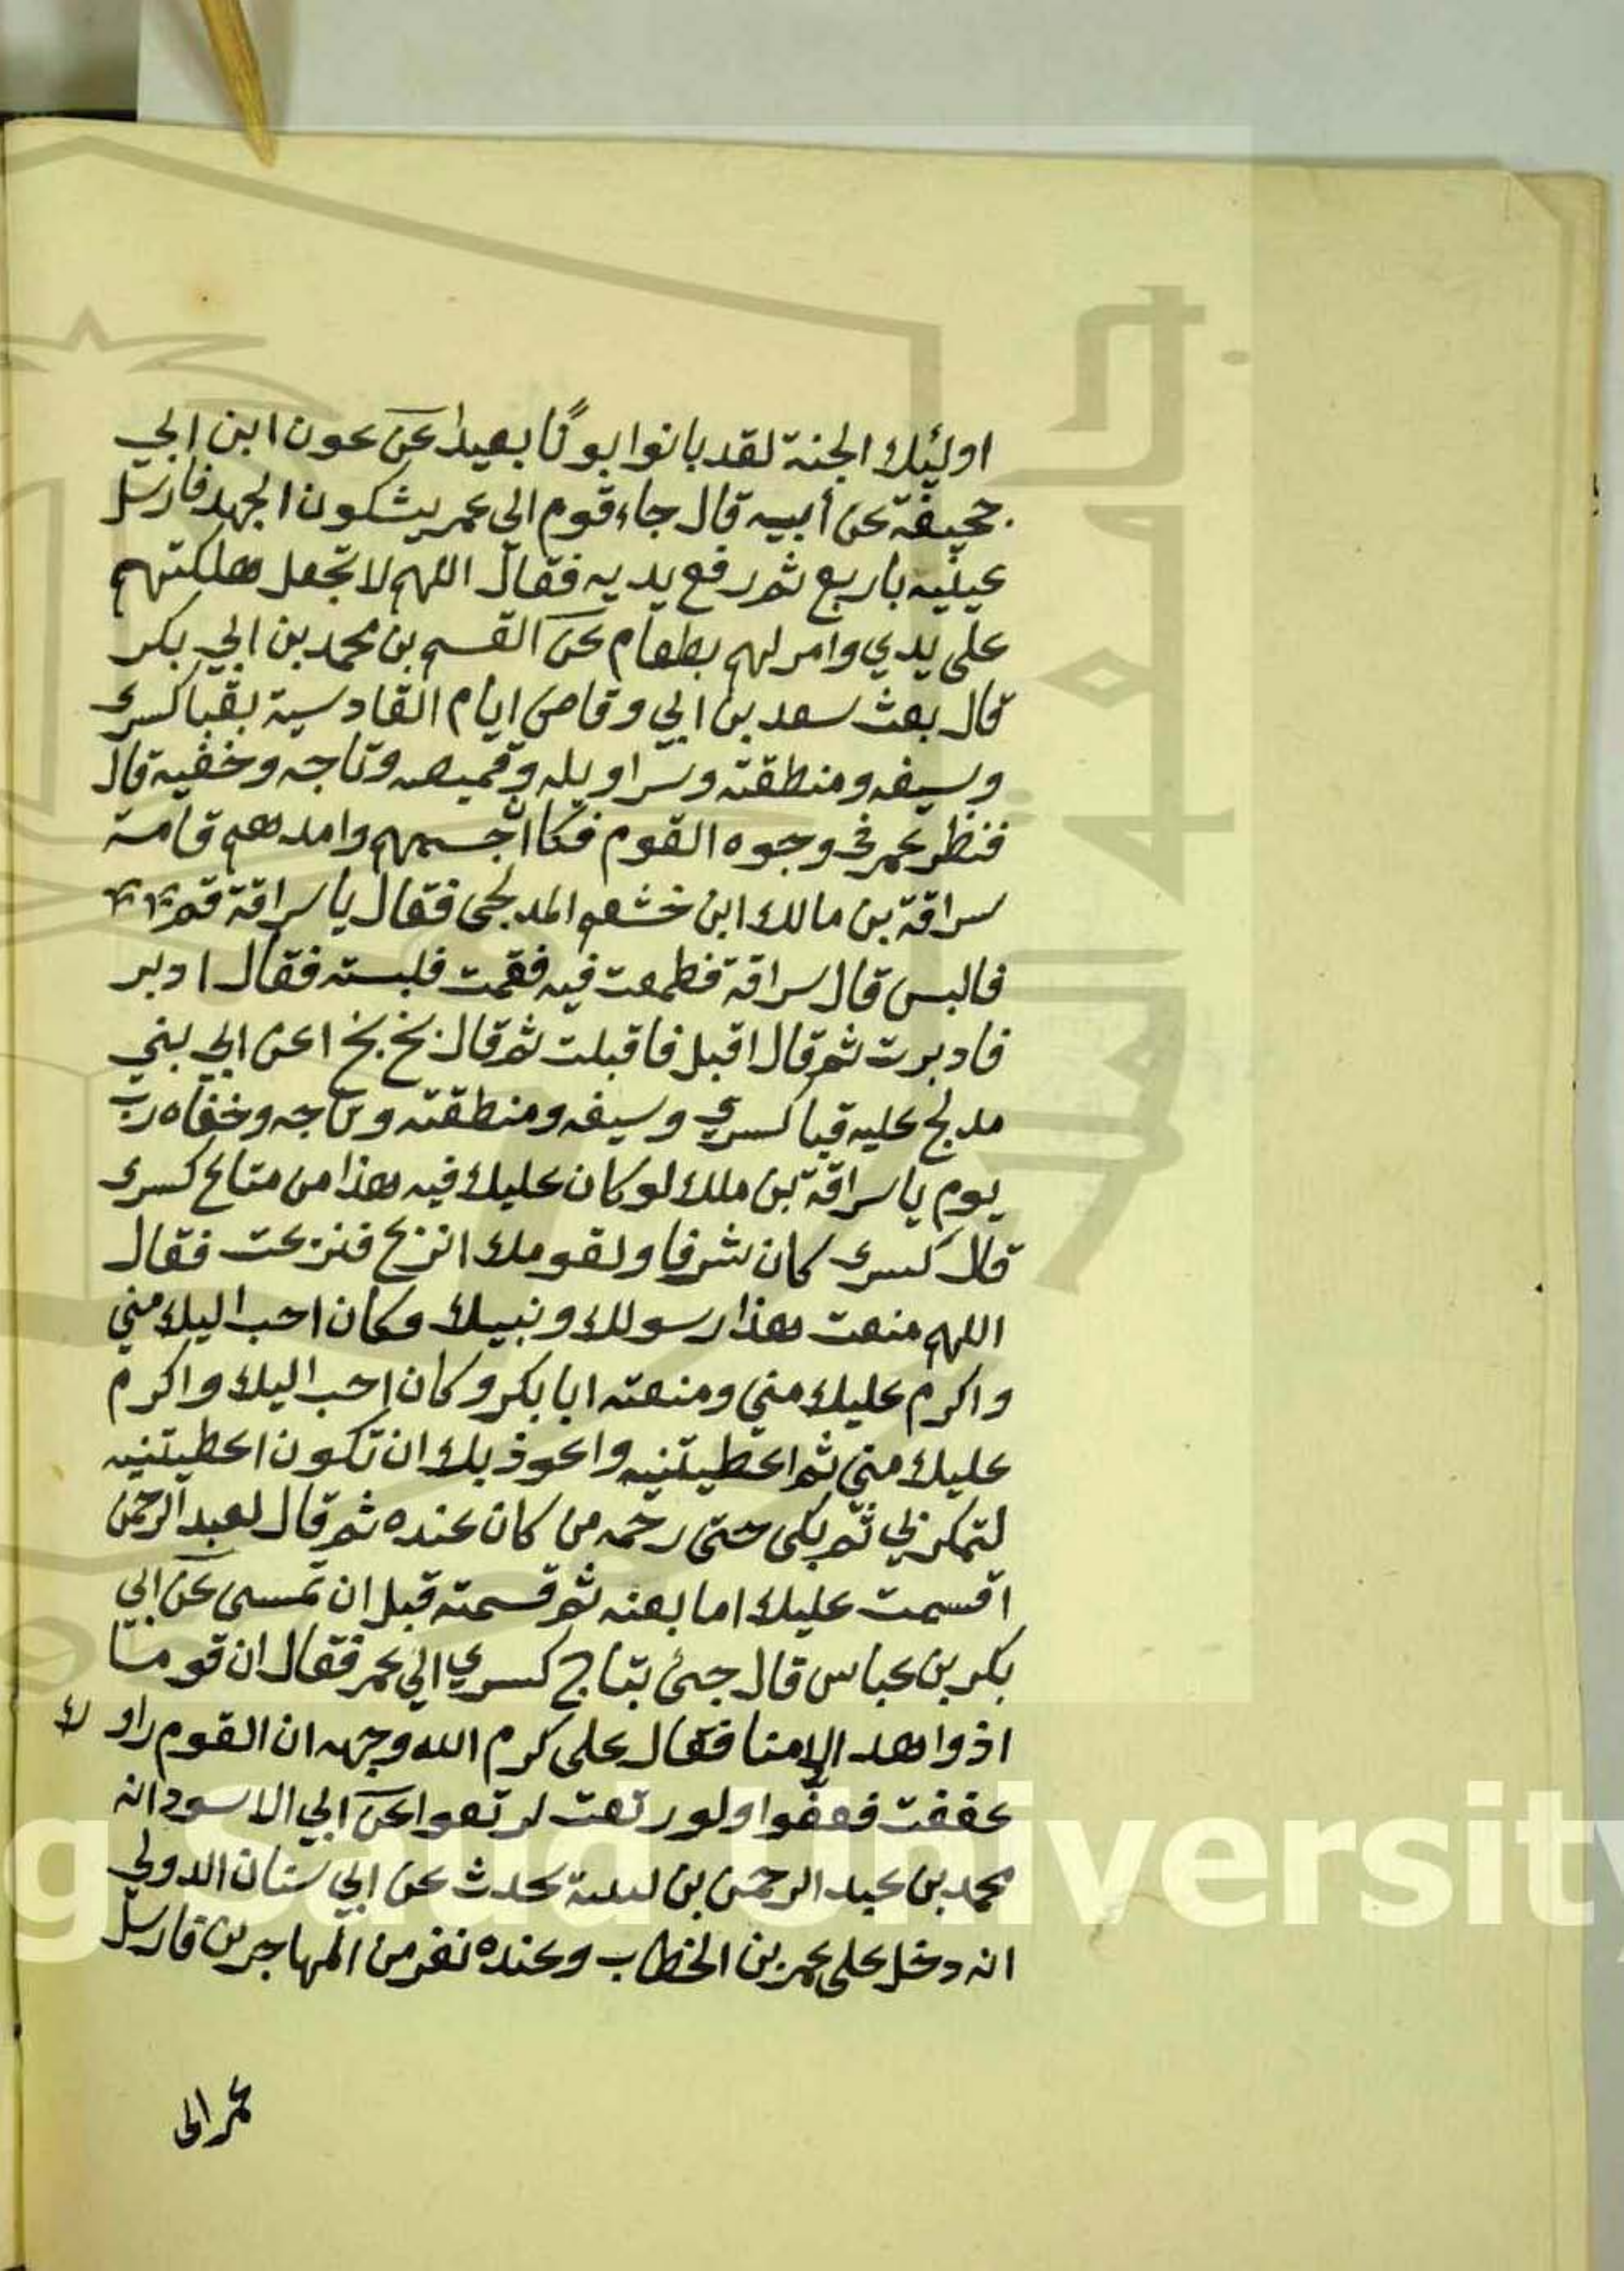 اولئك الجنة لقد بانوا بونًا بعيدا عن عون ابن ابي
جحيفة عن أبيه قال جاء قوم الي عمر يشكون الجهد فارسل
عينيه باربع ثم رفع يديه فقال اللهم لا تجعل هلكتهم
على يدي وامر لهم بطعام عن القسم بن محمد بن ابي بكر
قال بعث سعد بن ابي وقاص ايام القادسية بقبا كسرى
وسيفه ومنطقته وسراويله وقميصه وتاجه وخفيه قال
فنظر عمر في وجوه القوم فكان اجسمهم وامدهم قامة
سراقة بن مالك ابن خشعم المدلجي فقال يا سراقة قم
فالبس قال سراقة فطمعت فيه فقمت فلبسته فقال ادبر
فادبرت ثم قال اقبل فاقبلت ثم قال بخ بخ اعرابي بني
مدلج عليه قبا كسري وسيفه ومنطقته وتاجه وخفاه رب
يوم يا سراقة بن ملك لو كان عليك فيه هذا من متاع كسرى
قال كسرى كان شرفا ولقومك انزع فنزعت فقال
اللهم منعت هذا رسولك ونبيك وكان احب اليك مني
واكرم عليك مني ومنعته ابا بكر وكان احب اليك واكرم
عليك مني ثم اعطيتنيه واعوذ بك ان تكون اعطيتنيه
لتمكر بي ثم بكى حتى رحمه من كان عنده ثم قال لعبد الرحمن
اقسمت عليك اما بعته ثم قسمته قبل ان تمسى عن ابي
بكر بن عباس قال جئ بتاج كسري الي عمر فقال ان قوما
اذوا هذا لامنا فقال على كرم الله وجهه ان القوم راوك
عففت فعفوا ولو رتعت لرتعوا عن ابي الاسود انه
محمد بن عبد الرحمن بن لبيبة يحدث عن ابي سنان الدولي
انه دخل على عمر بن الخطاب وعنده نفر من المهاجرين فارسل
عمر الى
King Saud University